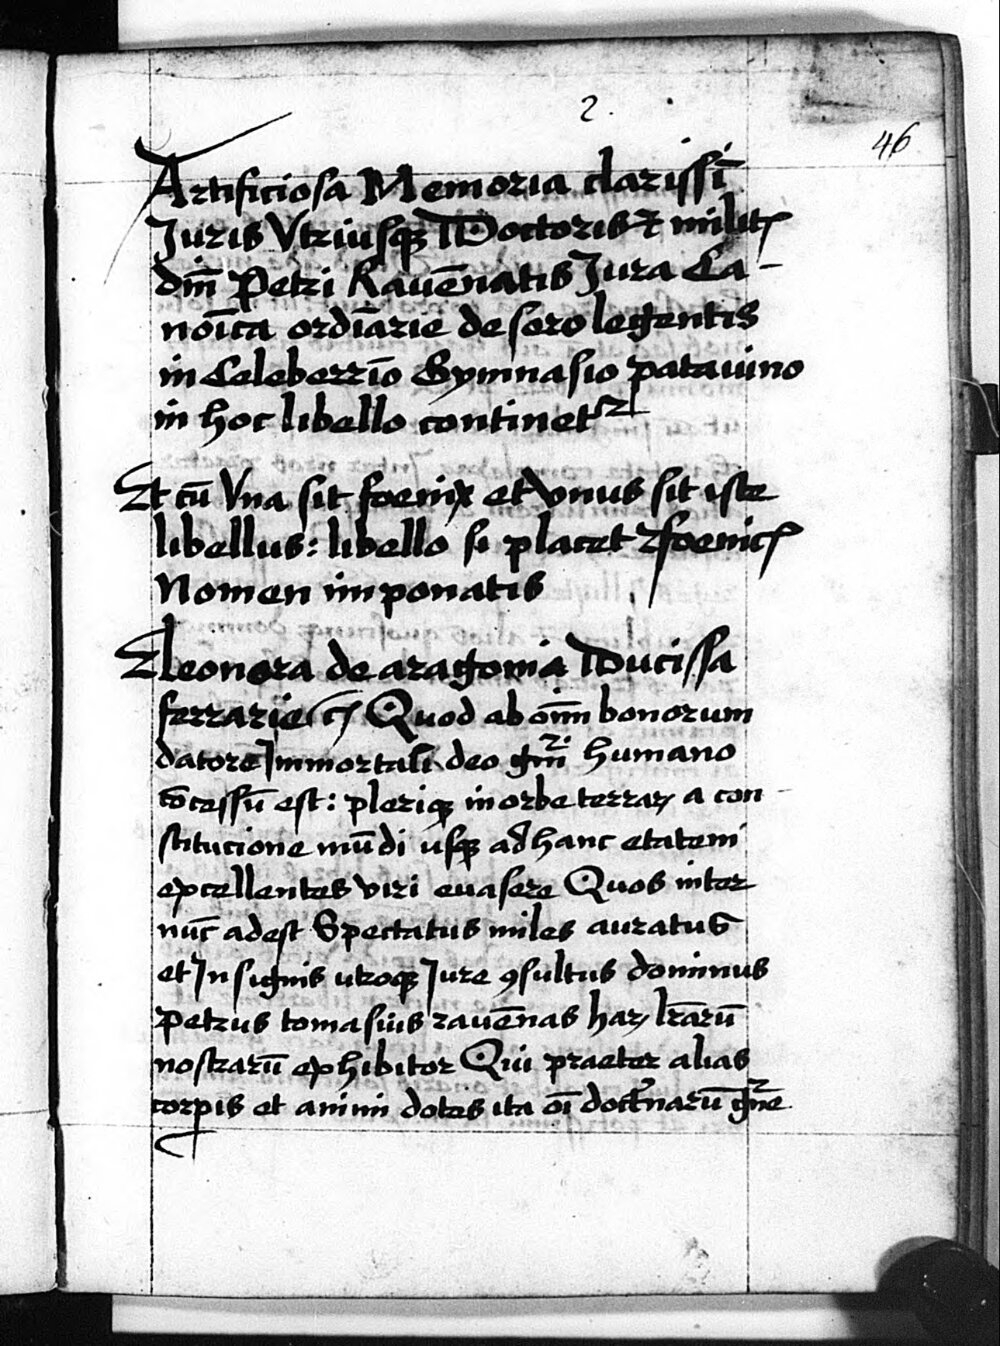 2.
46
Artificiosa Memoria clarissi͞
Juris Vtriusqꝫ Doctoris ⁊ milit
dn͞i Petri Raue͞natis Jura Ca-
noi͞ca ordi͞arie de sero legentis
in Celeberri͞o Gymnasio patauino
in hoc libello continetr
Et cu͞ Vna sit foenix et vnus sit iste
libellus: libello si placet ⁊ foenic
Nomen imponatis
Eleonora de aragonia Ducissa
ferrarie Quod ab om͞i bonorum
datore Immortali deo gn͞i humano
co͞cessu͞ est: pleriqꝫ in orbe terraꝝ a con-
stitucione mu͞di usqꝫ ad hanc etatem
excellentes viri euasere Quos inter
nu͞c adest Spectatus miles auratus
et Insignis utroqꝫ Jure ꝯsultus dominus
petrus tomasius raue͞nas haꝝ lr͞aru͞
nostraru͞ exhibitor Qui praeter alias
corpis et animi dotes ita oi͞ doctrinaru͞ gn͞e